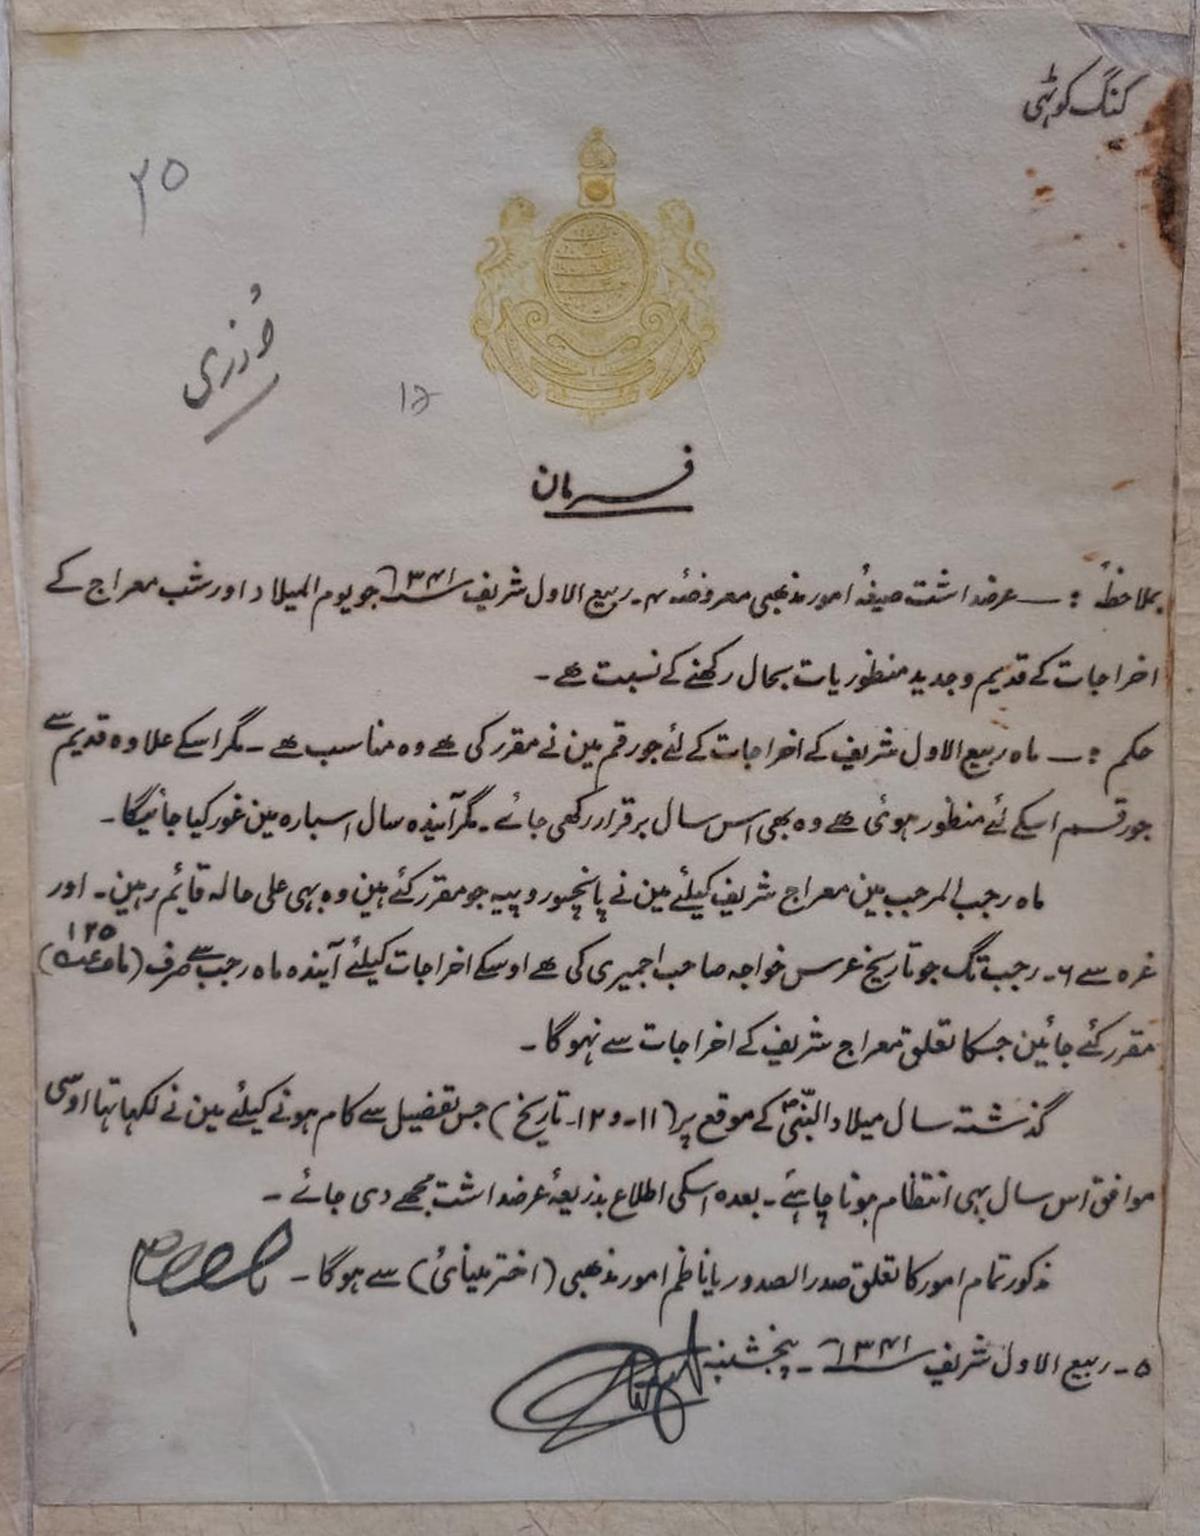 کنگ کوٹھی
۲۵
۱۲
فرمان
بملاحظہ :— عرضداشت صیغۂ امور مذھبی معروضۂ ۴۔ ربیع الاول شریف ۱۳۴۱ھ جو یوم المیلاد اور شب معراج کے
اخراجات کے قدیم و جدید منظوریات بحال رکھنے کے نسبت ھے۔
حکم :— ماہ ربیع الاول شریف کے اخراجات کے لئے جو رقم مین نے مقرر کی ھے وہ مناسب ھے۔ مگر اسکے علاوہ قدیم سے
جو رقسم اسکے لئے منظور ہوئی ھے وہ بھی اس سال برقرار رکھی جائے۔ مگر آیندہ سال اسبارہ مین غور کیا جائیگا۔
ماہ رجب المرجب مین معراج شریف کیلئے مین نے پانچسو روپیہ جو مقرر کئے ہین وہ بہی علی حالہ قایٔم رہین۔ اور
غرہ سے ۶۔ رجب تک جو تاریخ عرس خواجہ صاحب اجمیری کی ھے اوسکے اخراجات کیلئے آیندہ ماہ رجب سے صرف (۱۲۵)
مقرر کئے جائین جسکا تعلق معراج شریف کے اخراجات سے نہوگا۔
گذشتہ سال میلاد النبیؐ کے موقع پر (۱۱۔ و ۱۲۔ تاریخ) جس تفضیل سے کام ہونے کیلئے مین نے لکہا تہا اوسی
موافق اس سال بہی انتظام ہونا چاہئے۔ بعدہ اسکی اطلاع بذریعۂ عرضداشت مجھے دی جائے۔
مذکور تمام امور کا تعلق صدر الصدور یا ناظم امور مذھبی (اختر مینائی) سے ہوگا۔
۵۔ ربیع الاول شریف ۱۳۴۱ھ۔ پنجشنبہ